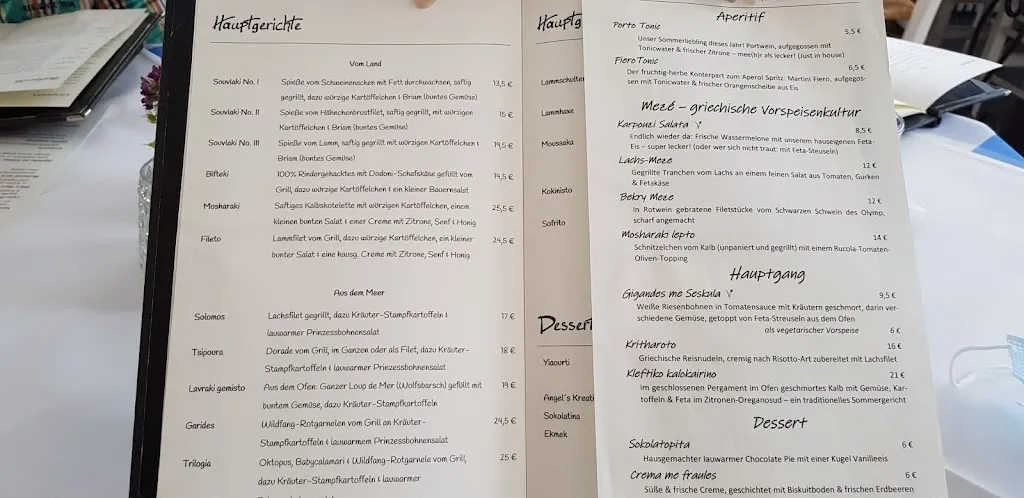 Hauptgerichte
Vom Land
Souvlaki No. I Spieße vom Schweinenacken mit Fett durchwachsen, saftig 13,5 €
gegrillt, dazu würzige Kartöffelchen & Briam (buntes Gemüse)
Souvlaki No. II Spieße vom Hähnchenbrustfilet, saftig gegrillt, mit würzigen 15 €
Kartöffelchen & Briam (buntes Gemüse)
Souvlaki No. III Spieße vom Lamm, saftig gegrillt mit würzigen Kartöffelchen & 19,5 €
Briam (buntes Gemüse)
Bifteki 100% Rindergehacktes mit Dodoni-Schafskäse gefüllt vom 14,5 €
Grill, dazu würzige Kartöffelchen & ein kleiner Bauernsalat
Mosharaki Saftiges Kalbskotelette mit würzigen Kartöffelchen, einem 25,5 €
kleinen bunten Salat & einer Creme mit Zitrone, Senf & Honig
Fileto Lammfilet vom Grill, dazu würzige Kartöffelchen, ein kleiner 24,5 €
bunter Salat & eine hausg. Creme mit Zitrone, Senf & Honig
Aus dem Meer
Solomos Lachsfilet gegrillt, dazu Kräuter-Stampfkartoffeln & 17 €
lauwarmer Prinzessbohnensalat
Tsipoura Dorade vom Grill, im Ganzen oder als Filet, dazu Kräuter- 18 €
Stampfkartoffeln & lauwarmer Prinzessbohnensalat
Lavraki gemisto Aus dem Ofen: Ganzer Loup de Mer (Wolfsbarsch) gefüllt mit 19 €
buntem Gemüse, dazu Kräuter-Stampfkartoffeln
Garides Wildfang-Rotgarnelen vom Grill an Kräuter- 24,5 €
Stampfkartoffeln & lauwarmem Prinzessbohnensalat
Trilogia Oktopus, Babycalamari & Wildfang-Rotgarnele vom Grill, 25 €
dazu Kräuter-Stampfkartoffeln & lauwarmer
Hauptg
Lammschulter
Lammhaxe
Moussaka
Kokinisto
Sofrito
Dessert
Yiaourti
Angel's Kreati
Sokolatina
Ekmek
Aperitif
Porto Tonic 5,5 €
Unser Sommerliebling dieses Jahr! Portwein, aufgegossen mit
Tonicwater & frischer Zitrone – mee(h)r als lecker! (Just in house)
Fiero Tonic 6,5 €
Der fruchtig-herbe Konterpart zum Aperol Spritz: Martini Fiero, aufgegos-
sen mit Tonicwater & frischer Orangenscheibe aus Eis
Mezé – griechische Vorspeisenkultur
Karpouzi Salata 8,5 €
Endlich wieder da: Frische Wassermelone mit unserem hauseigenen Feta-
Eis – super lecker! (oder wer sich nicht traut: mit Feta-Steuseln)
Lachs-Meze 12 €
Gegrillte Tranchen vom Lachs an einem feinen Salat aus Tomaten, Gurken
& Fetakäse
Bekry Meze 12 €
In Rotwein gebratene Filetstücke vom Schwarzen Schwein des Olymp,
scharf angemacht
Mosharaki lepto 14 €
Schnitzelchen vom Kalb (unpaniert und gegrillt) mit einem Rucola-Tomaten-
Oliven-Topping
Hauptgang
Gigandes me Seskula 9,5 €
Weiße Riesenbohnen in Tomatensauce mit Kräutern geschmort, darin ver-
schiedene Gemüse, getoppt von Feta-Streuseln aus dem Ofen
als vegetarischer Vorspeise 6 €
Kritharoto 16 €
Griechische Reisnudeln, cremig nach Risotto-Art zubereitet mit Lachsfilet
Kleftiko kalokairino 21 €
im geschlossenen Pergament im Ofen geschmortes Kalb mit Gemüse, Kar-
toffeln & Feta im Zitronen-Oreganosud – ein traditionelles Sommergericht
Dessert
Sokolatopita 6 €
Hausgemachter lauwarmer Chocolate Pie mit einer Kugel Vanilleeis
Crema me fraules 6 €
Süße & frische Creme, geschichtet mit Biskuitboden & frischen Erdbeeren